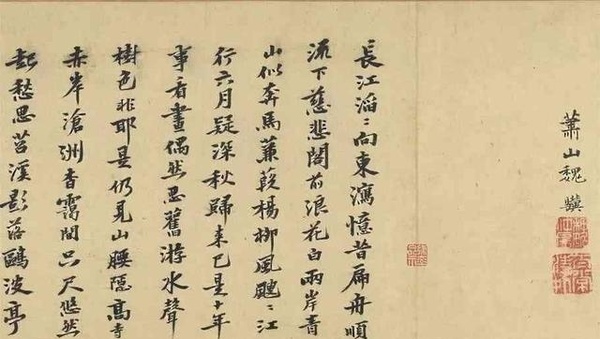 蕭山魏驥
長江滔〻向東瀉憶昔扁舟順
流下慈悲閣前浪花白兩岸青
山似奔馬蒹葭楊柳風颼〻江
行六月疑深秋歸來已是十年
事看畫偶然思舊游水聲
樹色非耶是仍見山腰隱高寺
赤岸滄洲杳靄間只尺悠然
起愁思苕溪影落鷗波亭